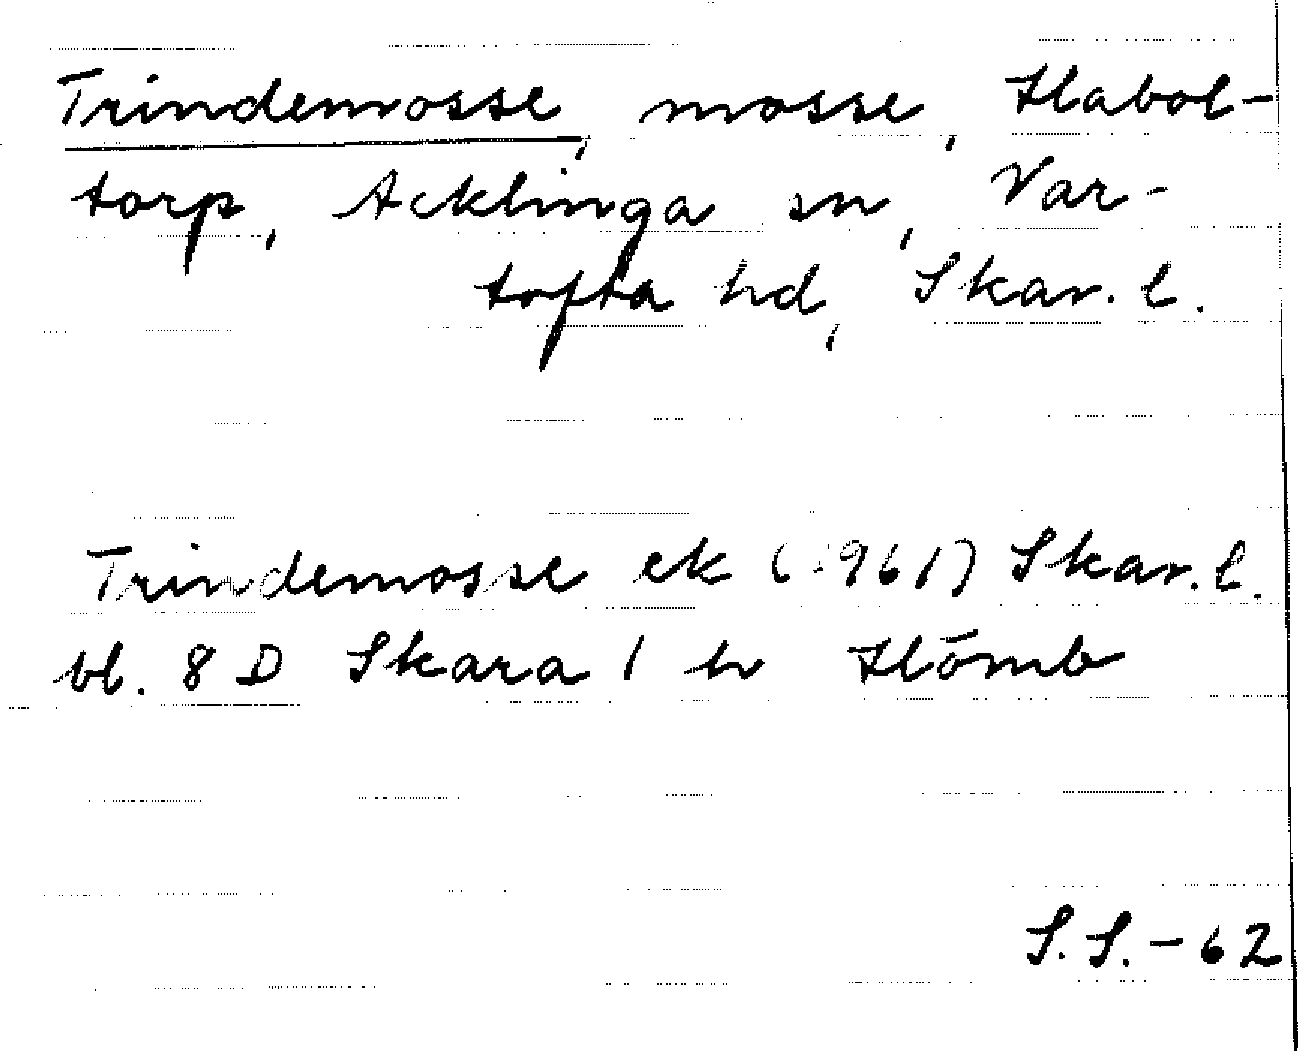 Trindemosse, mosse, Habol-
torp, Acklinga sn, Var-
tofta hd, Skar. l.
Trindemosse ek (1961) Skar. l.
bl. 8 D Skara 1 h Hömb
S. S. - 62